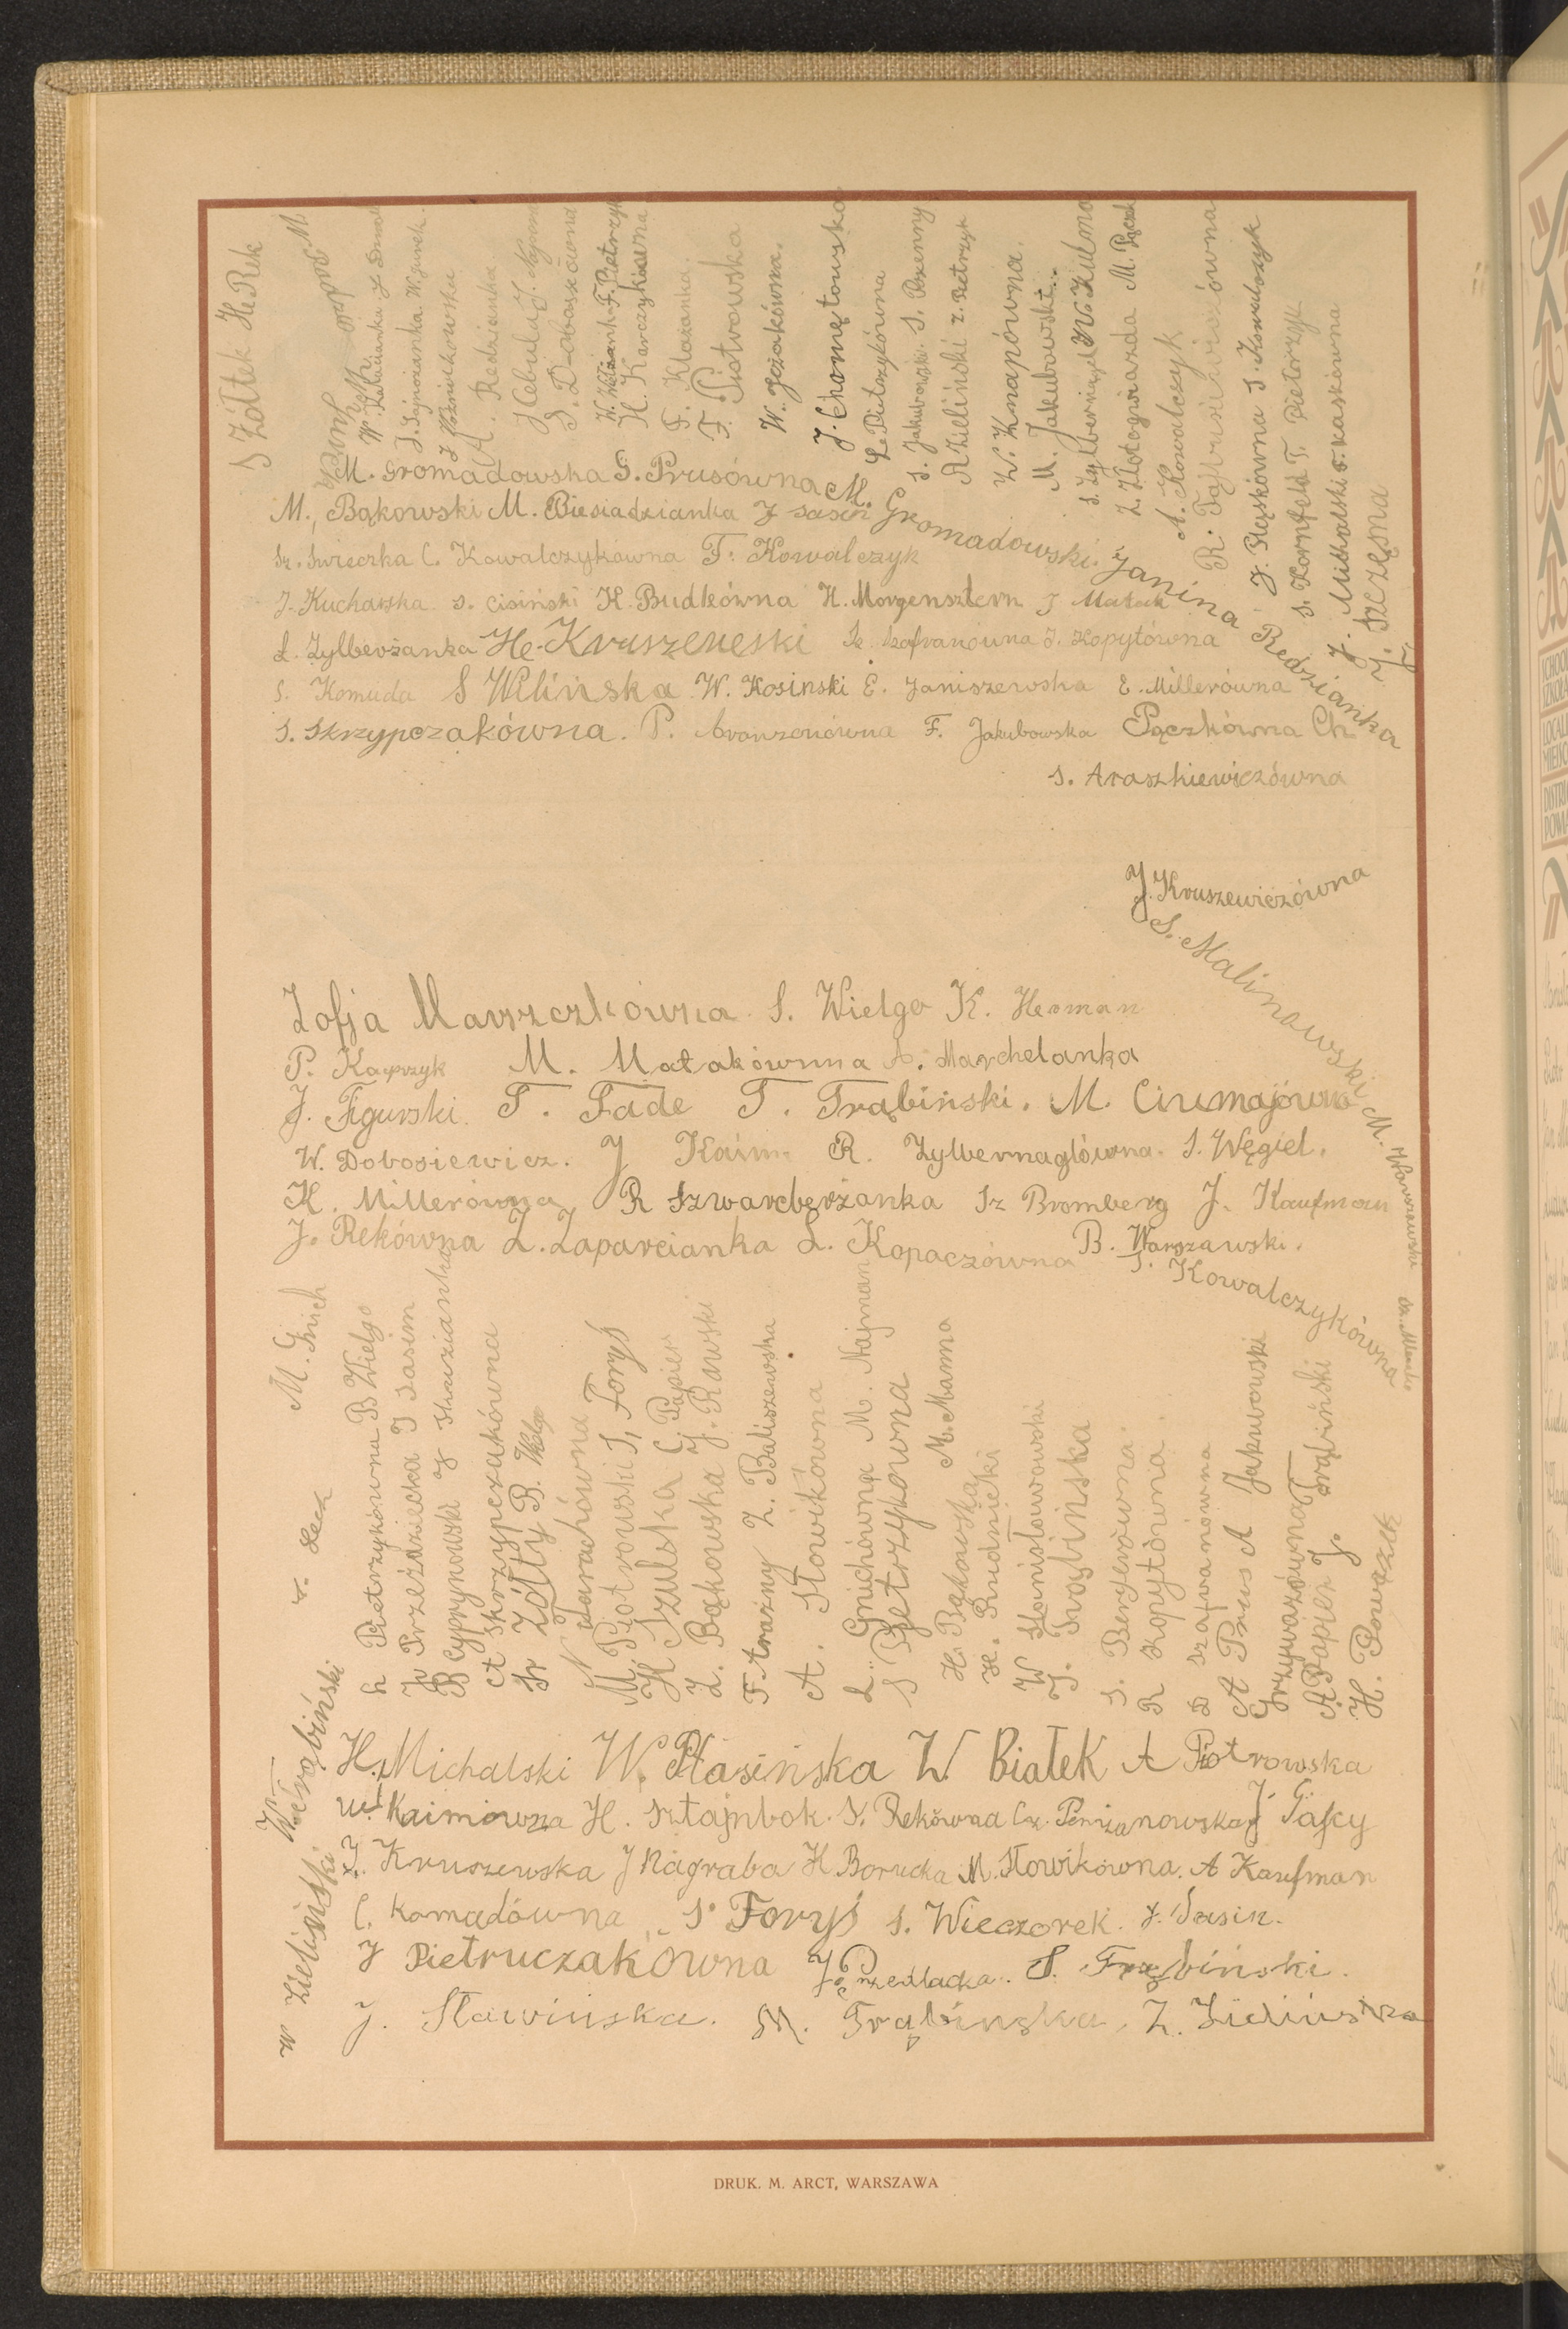 S Żółtek He. Rek
J. Sajnożanka. W. Jurek.
A. Redzianka.
J Cebula J. Najman
K. Karczykówna
F. Klażanka.
F. Piotrowska
W. Jeżakówna.
J. Chomętowska
Le Pietrzykówna
S. Jakubowski. S. Pszenny
R Zieliński Z. Pietrzyk
W. Knapówna.
M. Jakubowski.
Z. Złotogwiazda M. Pączek
A. Kowalczyk
R. Fajbusiewiczówna
J. Płąskówna J. Kowalczyk
S. Kornfeld T. Pietrzyk
J. Michalski S. Kaskówna
J. Szczęsna
M. Gromadowska G. Prusówna M. Gromadowski.
Janina Redzianka
M. Bąkowski M. Biesiadzianka J Sasin
Sz. Świeczka C. Kowalczykówna F. Kowalczyk
J. Kucharska S. Cisiński H. Budkówna H. Morgensztern J Matak
L. Zylberżanka He. Kruszewski Sz. Szafranówna J. Kopytówna
S. Komuda S Wilińska W. Kosinski E. Janiszewska E. Millerówna
S. Skrzypczakówna. P. Aronzonówna F. Jakubowska Pączkówna Ch.
S. Araszkiewiczówna
J. Kruszewiczówna
S. Malinowski M. Warszawski
Zofja Marszczkówna S. Wielgo K. Herman
P. Kacprzyk M. Matakówna A. Marchelanka
J. Figurski. T. Fade T. Trąbiński. M. Ciumajówna
W. Dobosiewicz. J Kaim. R. Zylbernaglówna. S. Węgiel.
H. Millerówna R Szwarcberżanka Sz Bromberg J. Kaufman
J. Rekówna Z. Zaparcianka L. Kopaczówna B. Warszawski.
S. Kowalczykówna
M. Gnich
Pietrzykówna B Wielgo
Przeździecka J Sasim
B Cyprynowska J
A Skrzypczakówna
Sz Żółty B. Wielgo
N Warachówna
M. Piotrowski S. Foryś
H Szulska C Papier
Z. Bąkowska J. Rawski
F. Atrażny Z. Baliszewska
A. Słowikówna
L. Gnichówna M. Najman
S Pietrzykówna
H. Bąkowska M. Manna
H. Rudnicki
W Stanisławowski
J. Trąbińska
S. Bergerówna.
R Kopytówna.
D Szafranówna
A Prus A Jakubowski
Grzywaczówna T
A Papier J. Trąbiński
H. Powązek
W. Trąbiński
W Zieliński
H. Michalski W. Płasińska W. Białek A Piotrowska
Wł. Kaimówna H. Sztajnbok. S. Rekówna Cz. Penzanowska J Gąscy
J. Kruszewska J Nagraba H Borucka M. Słowikówna. A Kaufman
C. Komudówna S. Foryś S. Wieczorek. J. Sasin.
J Pietruczakówna J Przedlacka. S. Trąbiński.
J. Sławińska. M. Trąbińska. Z. Zielińska
DRUK. M. ARCT, WARSZAWA